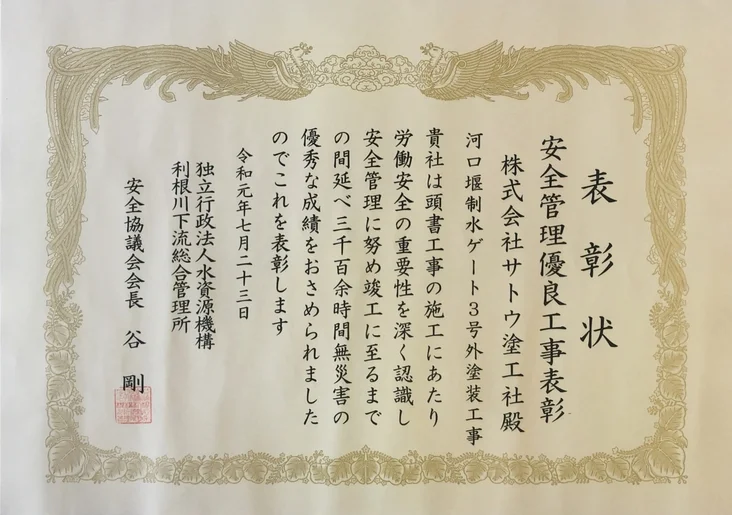 表彰状
安全管理優良工事表彰
株式会社サトウ塗工社殿
河口堰制水ゲート3号外塗装工事
貴社は頭書工事の施工にあたり
労働安全の重要性を深く認識し
安全管理に努め竣工に至るまで
の間延べ三千百余時間無災害の
優秀な成績をおさめられました
のでこれを表彰します
令和元年七月二十三日
独立行政法人水資源機構
利根川下流総合管理所
安全協議会会長 谷 剛